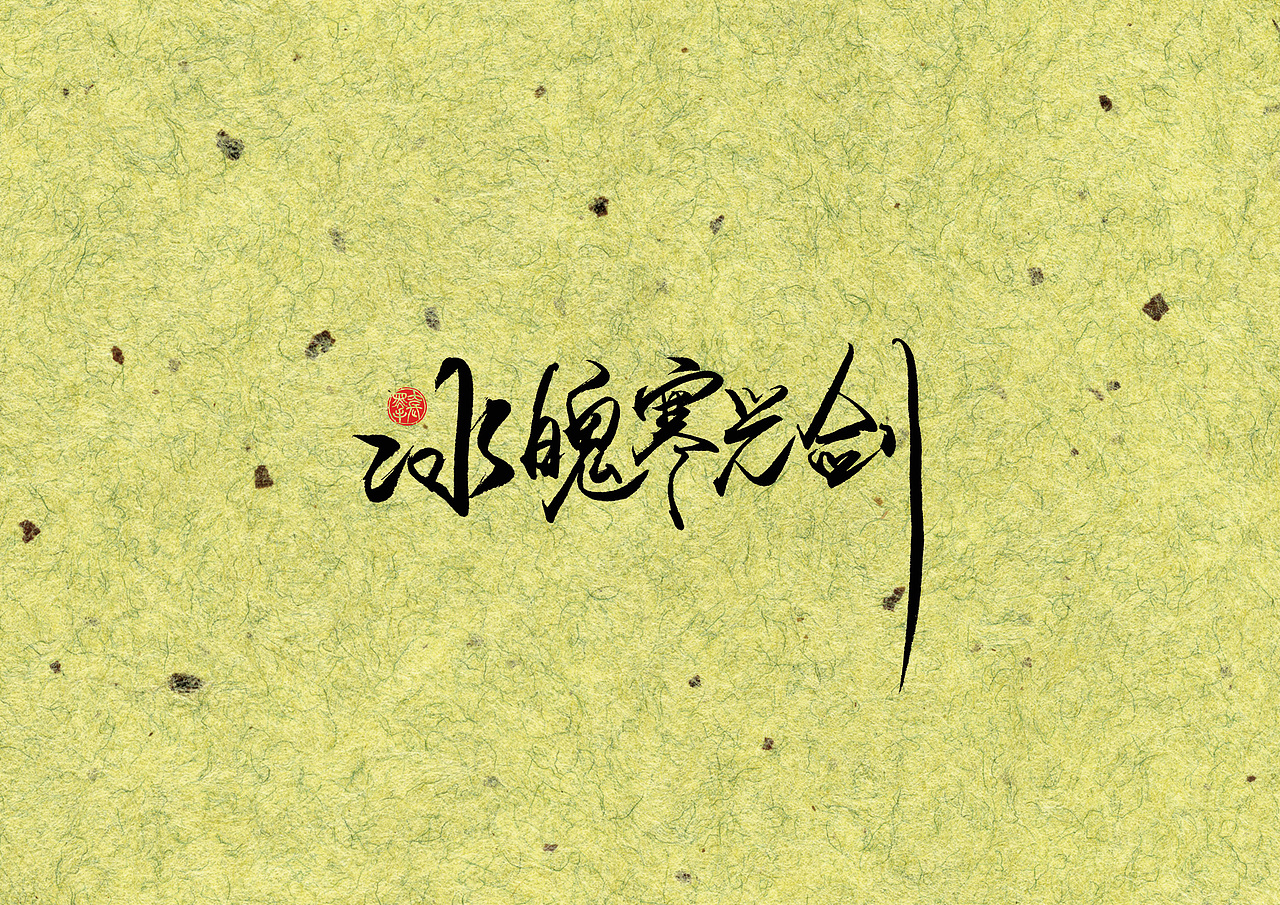 冰魄寒光剑